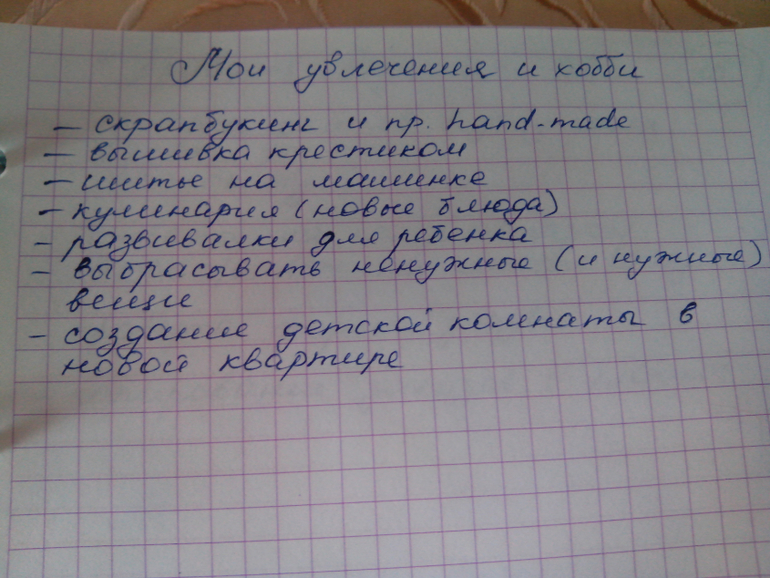 Мои увлечения и хобби
– скрапбукинг и пр. hand-made
– вышивка крестиком
– шитье на машинке
– кулинария (новые блюда)
– развивалки для ребенка
– выбрасывать ненужные (и нужные)
вещи
– создание детской комнаты в
новой квартире